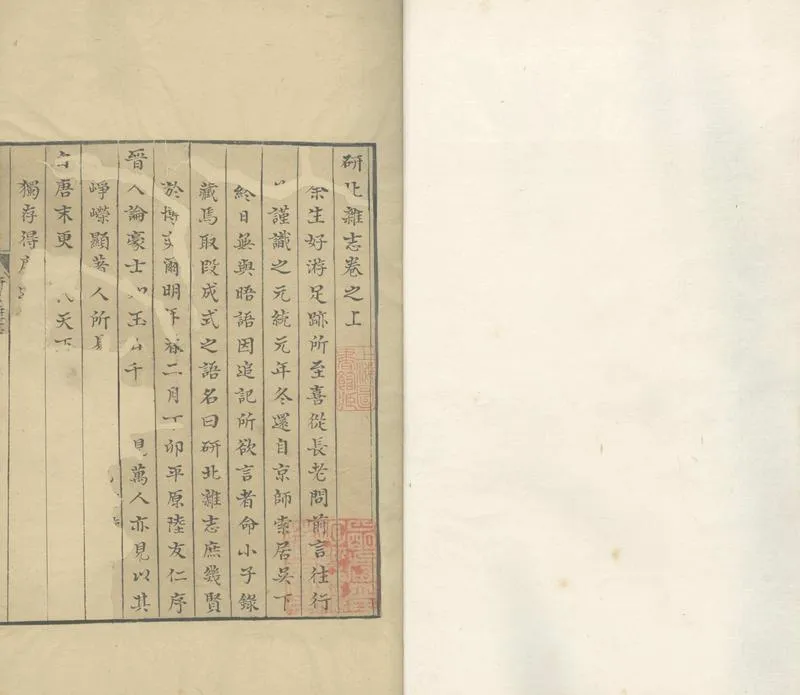 研北雜志卷之上
余生好游足跡所至喜從長老問前言往行
謹識之元統元年冬還自京師索居吳下
終日無與晤語因追記所欲言者命小子錄
藏焉取段成式之語名曰研北雜志庶幾賢
於博 爾明年春二月丁卯平原陸友仁序
晉人論豪士 玉 千 見萬人亦見以其
崢嶸顯著人所
唐末更 天下
獨存得
上海圖書館藏